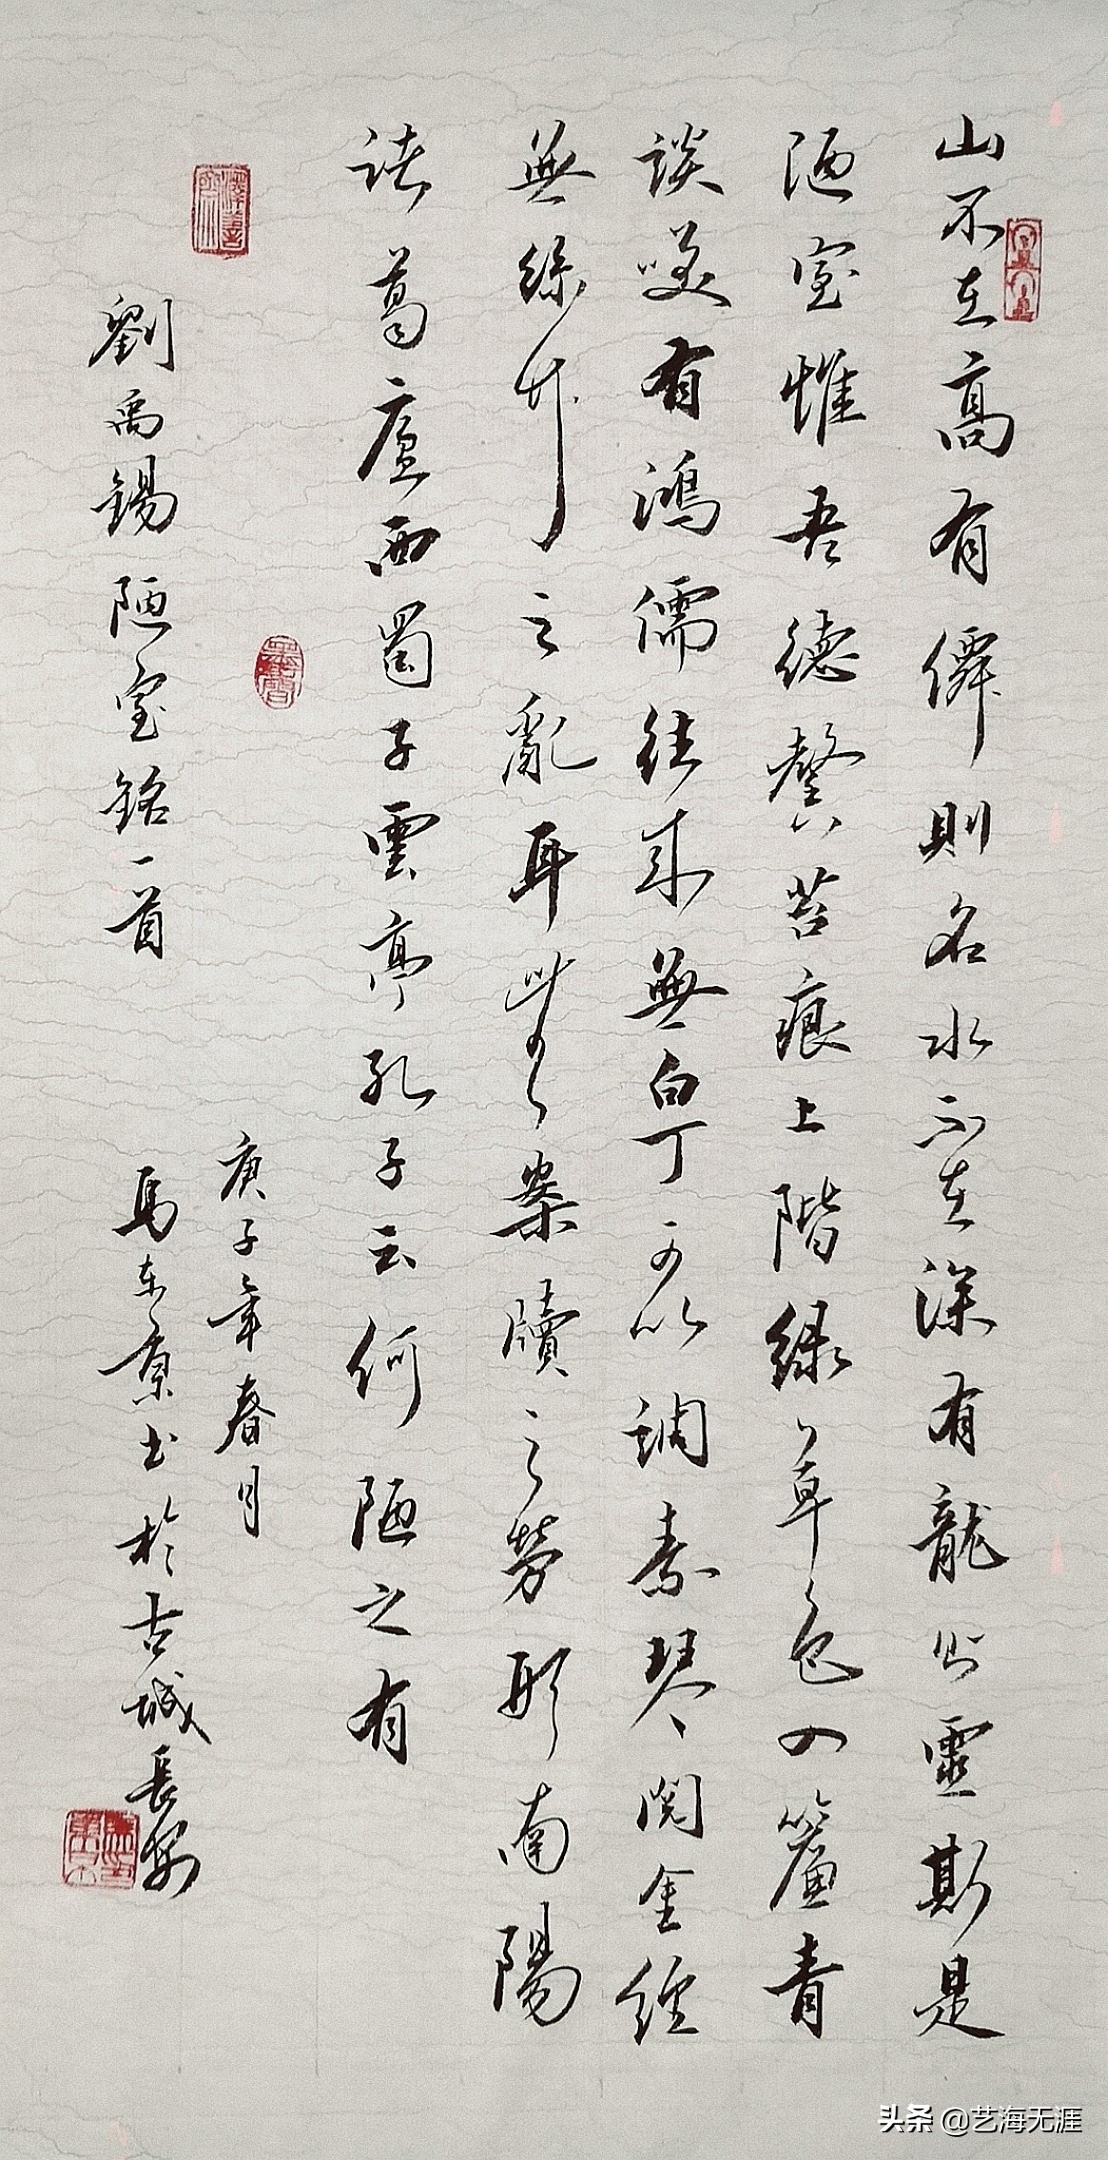 山不在高有僊則名水不在深有龍則靈斯是
陋室惟吾德馨苔痕上階綠草色入簾青
談咲有鴻儒往來無白丁可以調素琴閱金經
無絲竹之亂耳無案牘之勞形南陽
諸葛廬西蜀子雲亭孔子云何陋之有
劉禹錫陋室銘一首
庚子年春月
馬东原书於古城長安
头条 @艺海无涯